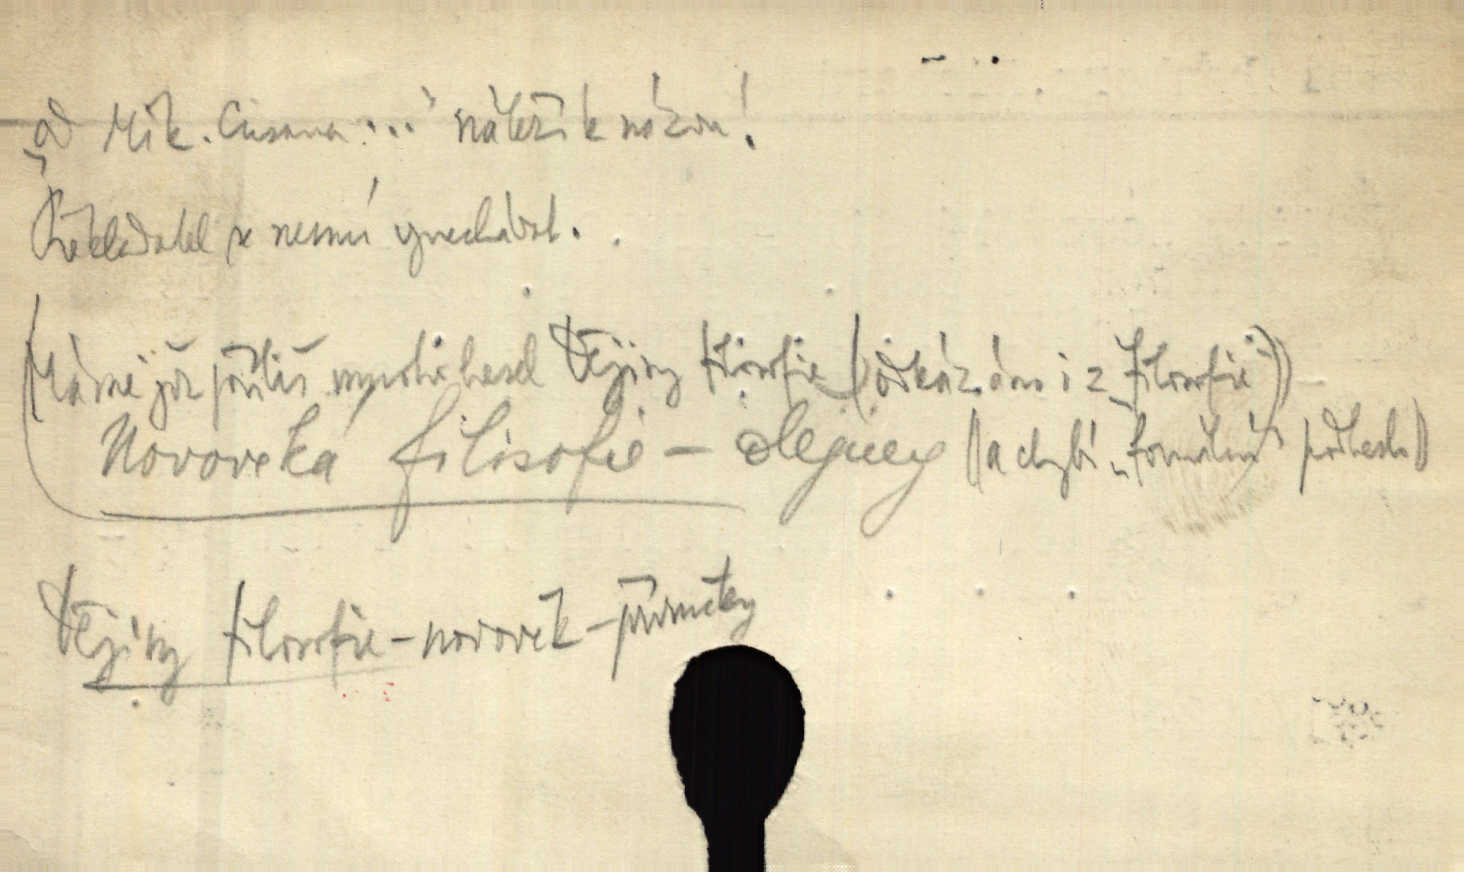 „od Mik. Cusana...“ náleží k názvu!
Překladatel se nesmí vynechávat.
(Máme již příliš mnoho hesel Dějiny filosofie (odkázáno i z „Filosofie“))
Novověká filosofie - dějiny (a chybí „formální“ podheslo)
Dějiny filosofie - novověk - příručky